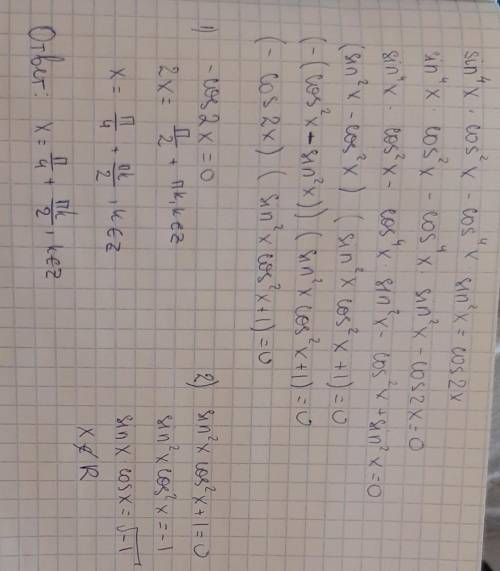 sin⁴x · cos²x - cos⁴x sin²x = cos2x
sin⁴x · cos²x - cos⁴x sin²x - cos2x = 0
sin⁴x · cos²x - cos⁴x sin²x - cos²x + sin²x = 0
(sin²x - cos²x) (sin²x cos²x + 1) = 0
(-(cos²x - sin²x)) (sin²x cos²x + 1) = 0
(- cos2x) (sin²x cos²x + 1) = 0
1) - cos2x = 0
2x = π/2 + πk, k∈Z
x = π/4 + πk/2, k∈Z
2) sin²x cos²x + 1 = 0
sin²x cos²x = -1
sinx cosx = √-1
x∉R
Ответ: x = π/4 + πk/2, k∈Z